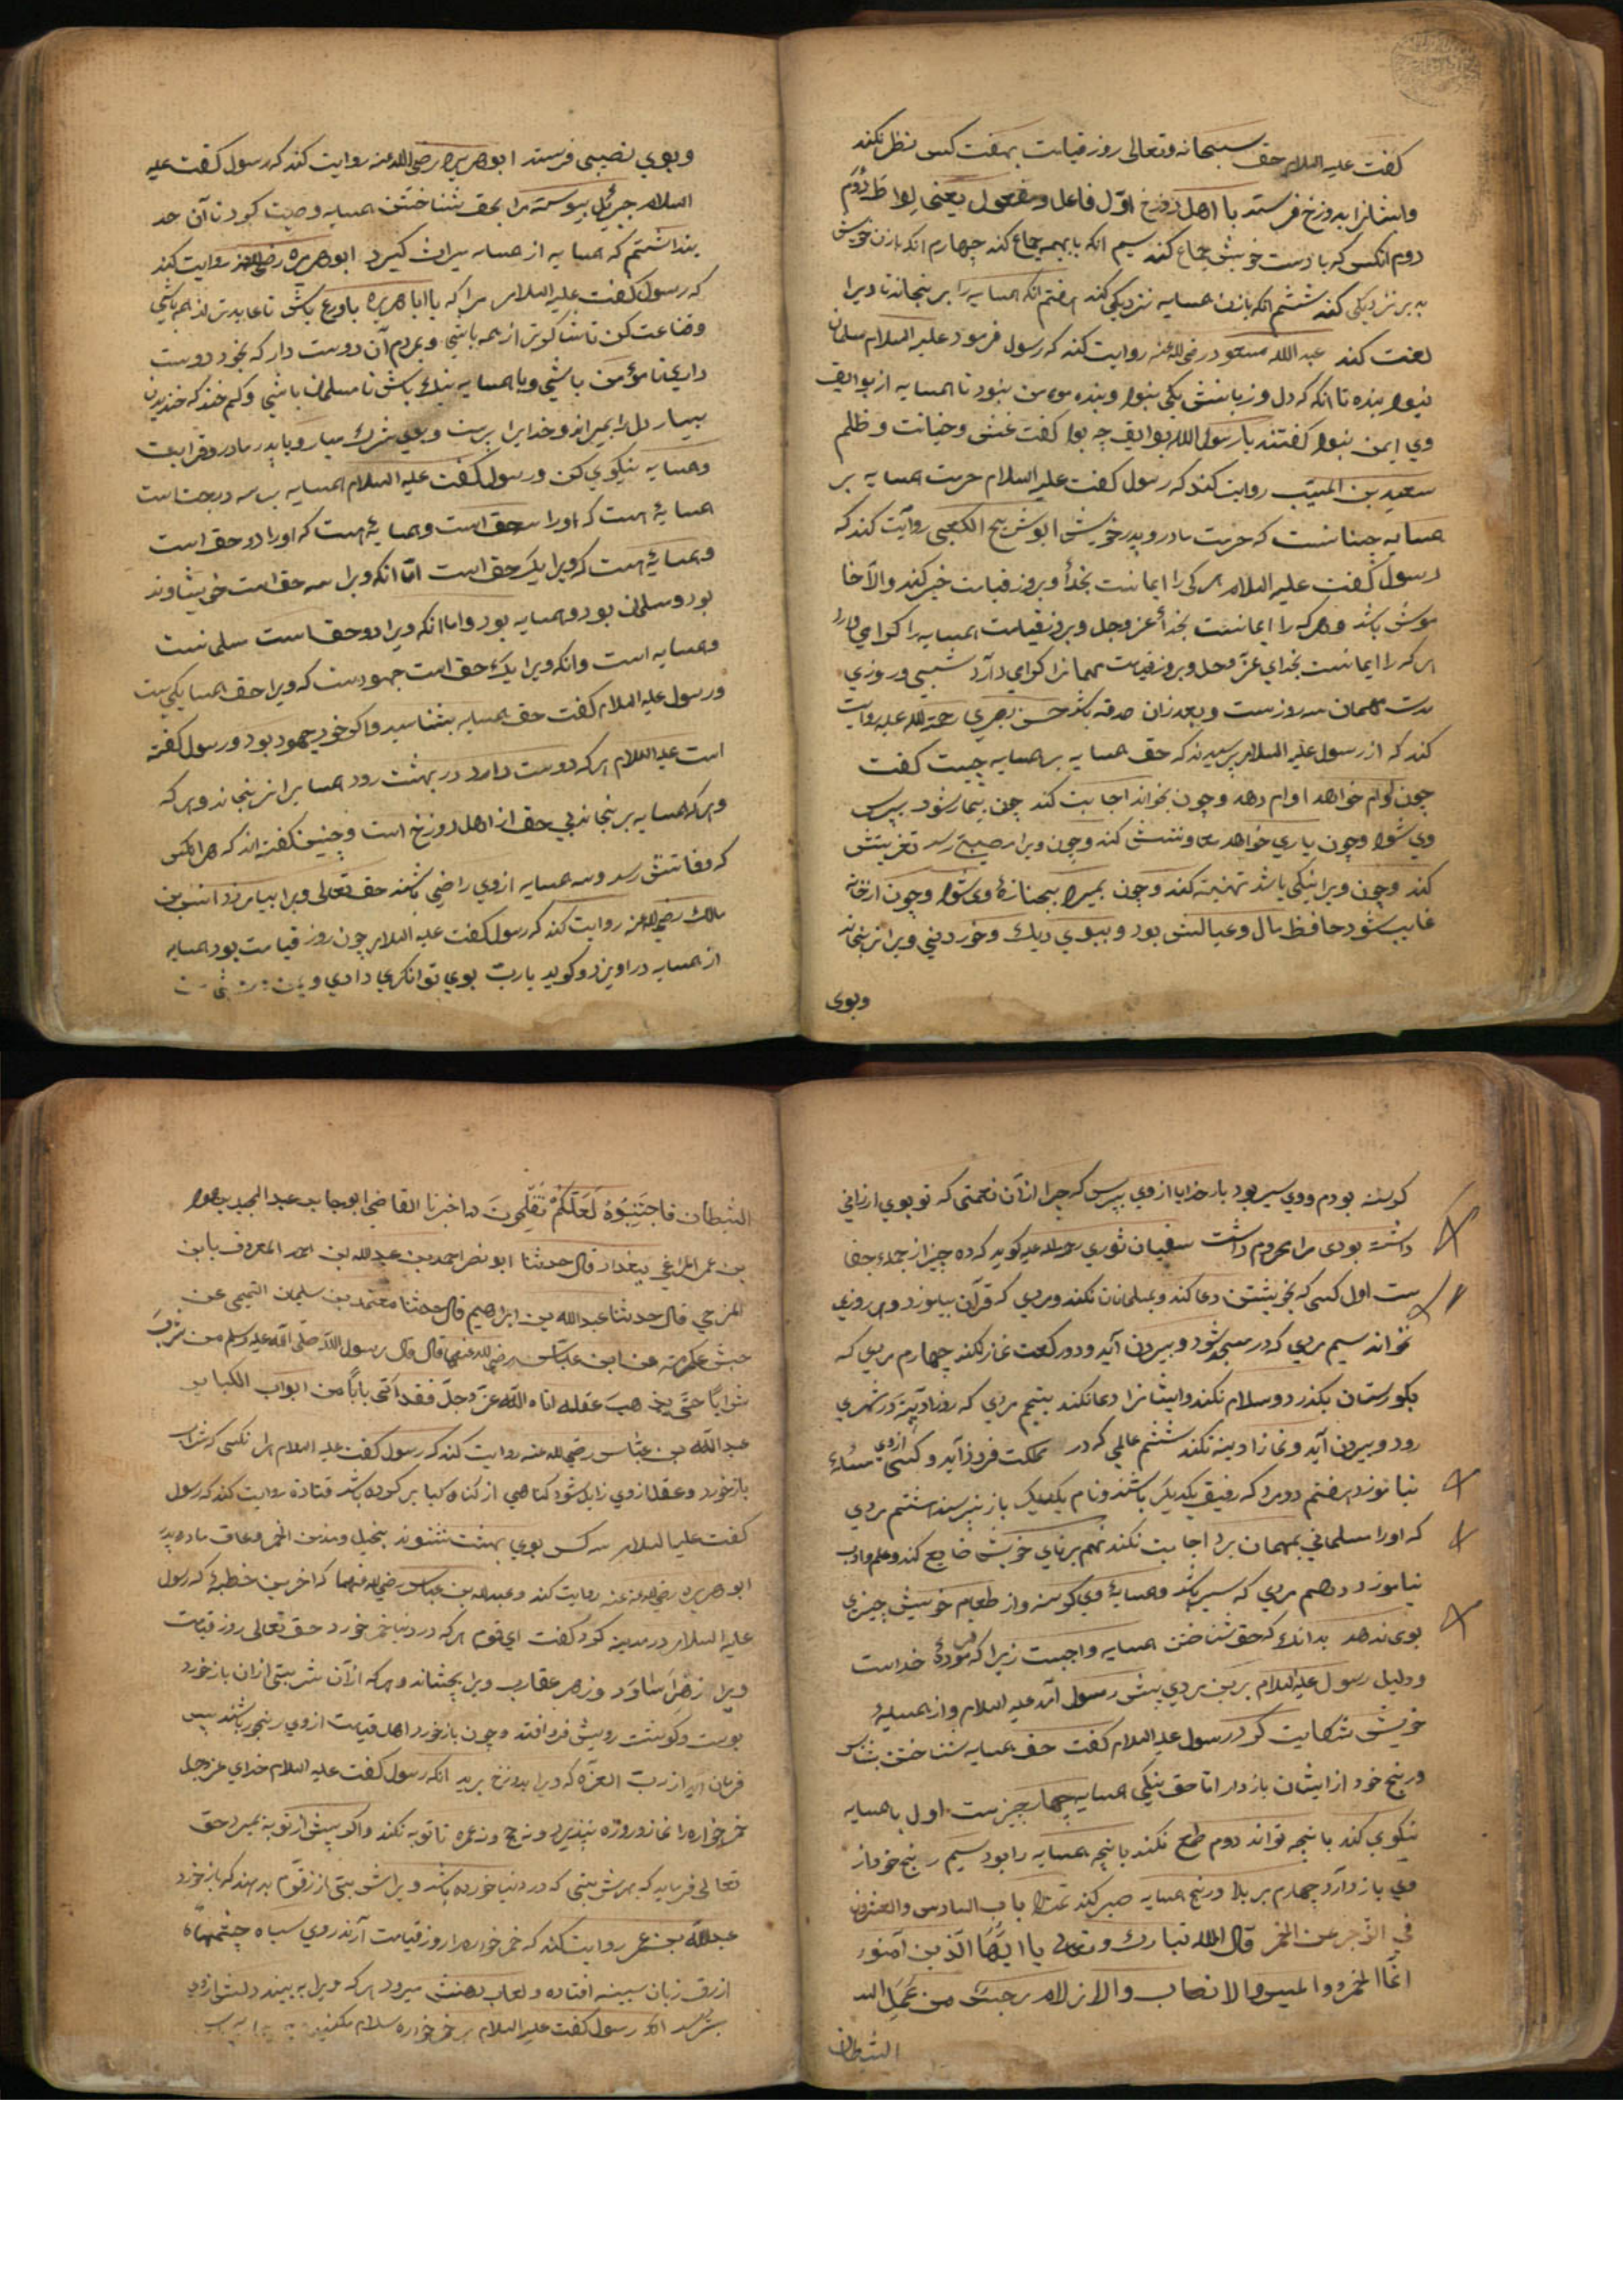 گفت علیه السلام حق سبحانه وتعالی روز قیامت بهفت کس نظر نکند
وایشانرا بدوزخ فرستد با اهل دوزخ اوّل فاعل ومفعول یعنی لواطه دوم
دوم آنکس که با دست خویش جماع کند سیم آنکه با بهیمه جماع کند چهارم آنکه با زن خویش
بدبر نزدیکی کند ششم آنکه بازن همسایه نزدیکی کند هفتم آنکه همسایه را برنجاند تا ویرا
لعنت کند عبد الله مسعود رضی الله عنه روایت کند که رسول فرمود علیه السلام مسلمان
نبود بنده تا آنکه که دل وزبانش یکی بنود وبنده مومن نبود تا همسایه از بوایق
وی ایمن نبود گفتند یا رسول الله بوایق چه بود گفت غش وخیانت وظلم
سعید بن المسیّب روایت کند که رسول گفت علیه السلام حرمت همسایه بر
همسایه چنانست که حرمت مادر وپدر خویش ابو شریح الکعبی روایت کند که
رسول گفت علیه السلام هر کی را ایمانست بخدا وبروز قیامت خیر کند والّا خا
موش باشد وهر که را ایمانست بخدا عز وجل وبروز قیامت همسایه را گرامی دارد
هر که را ایمانست بخدای عزّ وجل وبروز قیامت مهمانرا گرامی دارد شبی وروزی
مدت مهمان سه روزست وبعد زان صدقه باشد حسن بصری رحمة الله علیه روایت
کند که از رسول علیه السلام پرسیدند که حق همسایه بر همسایه چیست گفت
چون اوام خواهد اوام دهد وچون بخواند اجابت کند چون بیمار شود بپرس
وی شود وچون یاری خواهد معاونتش کند وچون ویرا مصیبتی رسد تعزیتش
کند وچون ویرا نیکی باشد تهنیت کند وچون بمیرد بجنازهٔ وی شود وچون از خانه
غایب شود حافظ مال وعیالش بود وببوی دیک وخوردنی ویرا نرنجاند
وبوی
وبوی نصیبی فرستد ابو هریره رضی الله عنه روایت کند که رسول گفت علیه
السلام جبرئیل پیوسته مرا بحق شناختن همسایه وصیت کرد تا آن حد
پنداشتم که همسایه از همسایه میراث گیرد ابو هریره رضی الله عنه روایت کند
که رسول گفت علیه السلام مرا که یا ابا هریره باورع باش تا عابدترین همه باشی
وقناعت کن تا شاکرتر از همه باشی وبمردم آن دوست دار که بخود دوست
داری تا مؤمن باشی وبا همسایه نیک باش تا مسلمان باشی وکم خند که خندیدن
بسیار دل را بمیراند وخدایرا پرست وبوی شرک میار وبا پدر مادر وقرابت
وهمسایه نیکوی کن ورسول گفت علیه السلام همسایه بر سه درجت است
همسایهٔ هست که او را سه حق است وهمسایهٔ هست که او را دو حق است
وهمسایهٔ هست که ویرا یک حق است امّا آنکه ویرا سه حق است خویشاوند
بود ومسلمان بود وهمسایه بود واما آنکه ویرا دو حق است مسلمانست
وهمسایه است وآنکه ویرا یک حق است جهودست که ویرا حق همسایکی ست
ورسول علیه السلام گفت حق همسایه بشناسید واگر خود جهود بود ورسول گفته
است علیه السلام هر که دوست دارد در بهشت رود همسایه را نرنجاند وهر که
وهر که همسایه برنجاند بی حق از اهل دوزخ است وچنین گفته اند که هر آنکس
که وفاتش رسد وسه همسایه از وی راضی باشند حق تعالی ویرا بیامرزد انس بن
مالک رضی الله عنه روایت کند که رسول گفت علیه السلام چون روز قیامت بود همسایه
از همسایه درآویزد وگوید یارب بوی توانگری دادی
گرسنه بودم ووی سیر بود بار خدایا از وی بپرس که چرا از آن نعمتی که تو بوی ارزانی
داشته بودی مرا محروم داشت سفیان ثوری رحمة الله علیه گوید که ده چیز از جمله جفا
ست اول کسی که بخویشتن دعا کند وبمسلمانان نکند ومردی که قرآن بیاموزد وهر روزی
نخواند سیم مردی که در مسجد شود وبیرون آید ودو رکعت نماز نکند چهارم مردی که
بگورستان بگذرد وسلام نکند وایشانرا دعا نکند پنجم مردی که روز آدینه در شهری
رود وبیرون آید ونماز آدینه نکند ششم عالمی که در مملکت فرود آید وکسی از وی مسئلهٔ
نیاموزد هفتم دو مرد که رفیق یکدیگر باشند ونام یکدیگر باز نپرسند هشتم مردی
که او را مسلمانی بمهمان برد اجابت نکند نهم برنای خویش ضایع کند وعلم وادب
نیاموزد دهم مردی که سیر باشد وهمسایهٔ وی گرسنه واز طعام خویش چیزی
بوی ندهد بدانک که حق شناختن همسایه واجبست زیرا که فرمودهٔ خداست
ودلیل رسول علیه السلام برین مردی پیش رسول آمد علیه السلام واز همسایهٔ
خویش شکایت کرد رسول علیه السلام گفت حق همسایه شناختن بشناس
ورنج خود از ایشان بازدار اما حق نیکی همسایه چهار چیزست اول با همسایه
نیکوی کند بانچه تواند دوم طمع نکند بانچه همسایه را بود سیم رنج خود از
وی باز دارد چهارم بر بلا ورنج همسایه صبر کند تمت باب السادس والعشرون
فی الزجر عن الخمر قال الله تبارک وتعالی یا ایّها الّذین آمنوا
انّما الخمر والمیسر والانصاب والازلام رجس من عمل الشـ
الشیطان
الشیطان فاجتنبوه لعلّکم تفلحون اخبرنا القاضی ابو حاجب عبد المجید
بن عمر المراغی ببغداد قال حدثنا ابو نصر احمد بن عبد الله بن احمد المعروف بابن
المرجی قال حدثنا عبد الله بن ابراهیم قال حدثنا معتمد بن سلیمان التیمی عن
حبش عکرمه عن ابن عبّاس رضی الله عنهما قال قال رسول اللّه صلّی الله علیه وسلم من شرب
شراباً حتّی یذهب عقله اتاه اللّه عزّ وجلّ فقد اتی باباً من ابواب الکبایر
عبد اللّه بن عبّاس رضی الله عنه روایت کند که رسول گفت علیه السلام هر آنکسی که شراب
بازخورد وعقل از وی زایل شود گناهی از گناه کبایر کرده باشد قتادة روایت کند که رسول
گفت علیه السلام سه کس بوی بهشت نشنوند بخیل ومدمن الخمر وعاق مادر پدر
ابو هریره رضی الله عنه روایت کند وعبد الله بن عباس رضی الله عنهما که آخرین خطبهٔ که رسول
علیه السلام در مدینه کرد گفت ای قوم هر که در دنیا خمر خورد حق تعالی روز قیامت
ویرا از زهر اساود وزهر عقارب ویرا بچشاند وهر که از آن شربتی ازان بازخورد
پوست وگوشت رویش فرو افتد وچون بازخورد اهل قیامت از وی برنجور باشند پس
فرمان آید از رب العزّه که ویرا بدوزخ برید آنکه رسول گفت علیه السلام خدای عز وجل
خمر خواره را نماز وروزه نپذیرد ونه حج ونه عمره تا توبه نکند واگر پیش از توبه بمیرد حق
تعالی فرماید که بهر شربتی که در دنیا خورده باشد ویرا شربتی از زقّوم بدهند که بازخورد
عبد اللّه بن عمر روایت کند که خمر خواره را روز قیامت آرند روی سیاه چشمهاء
ازرق زبان بسینه افتاده ولعاب دهنش میرود هر که ویرا به بیند دلش از وی
بترسد رسول گفت علیه السلام بر خمر خواره سلام مکنید